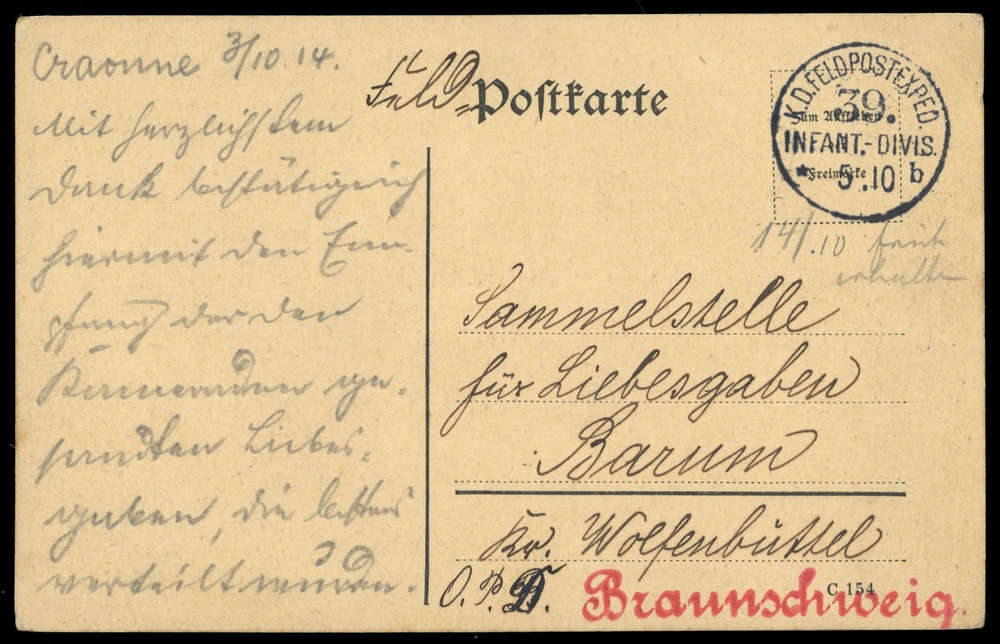 Craonne 3/10.14.
Mit herzlichstem
Dank bestätige ich
hiermit den Em-
pfang der den
Kameraden ge-
sandten Liebes-
gaben, die bestens
verteilt wurden.
Feld-Postkarte
K.D.FELDPOSTEXPED.
39.
INFANT.-DIVIS.
* 5.10 b
Zum Aufkleben
Freimarke
14/.10 früh
erhalten
Sammelstelle
für Liebesgaben
Barum
Kr. Wolfenbüttel
O.P.D. Braunschweig.
C 154